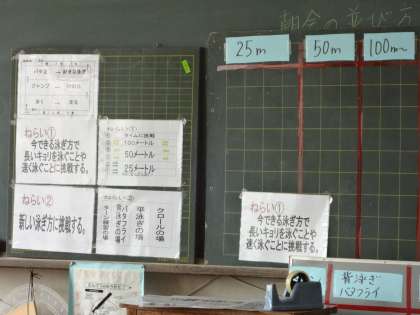 朝会の並び方
25m
50m
100m~
バタ足
ねらい①
今できる泳ぎ方で
長いキョリを泳ぐことや
速く泳ぐことに挑戦する。
ねらい①
タイムに挑戦
100メートル
50メートル
25メートル
ねらい②
新しい泳ぎ方に挑戦する。
ねらい②
クロールの場
平泳ぎの場
バタフライの場
背泳ぎの場
ターン練習の場
ねらい①
今できる泳ぎ方で
長いキョリを泳ぐことや
速く泳ぐことに挑戦する。
背泳ぎ
バタフライ